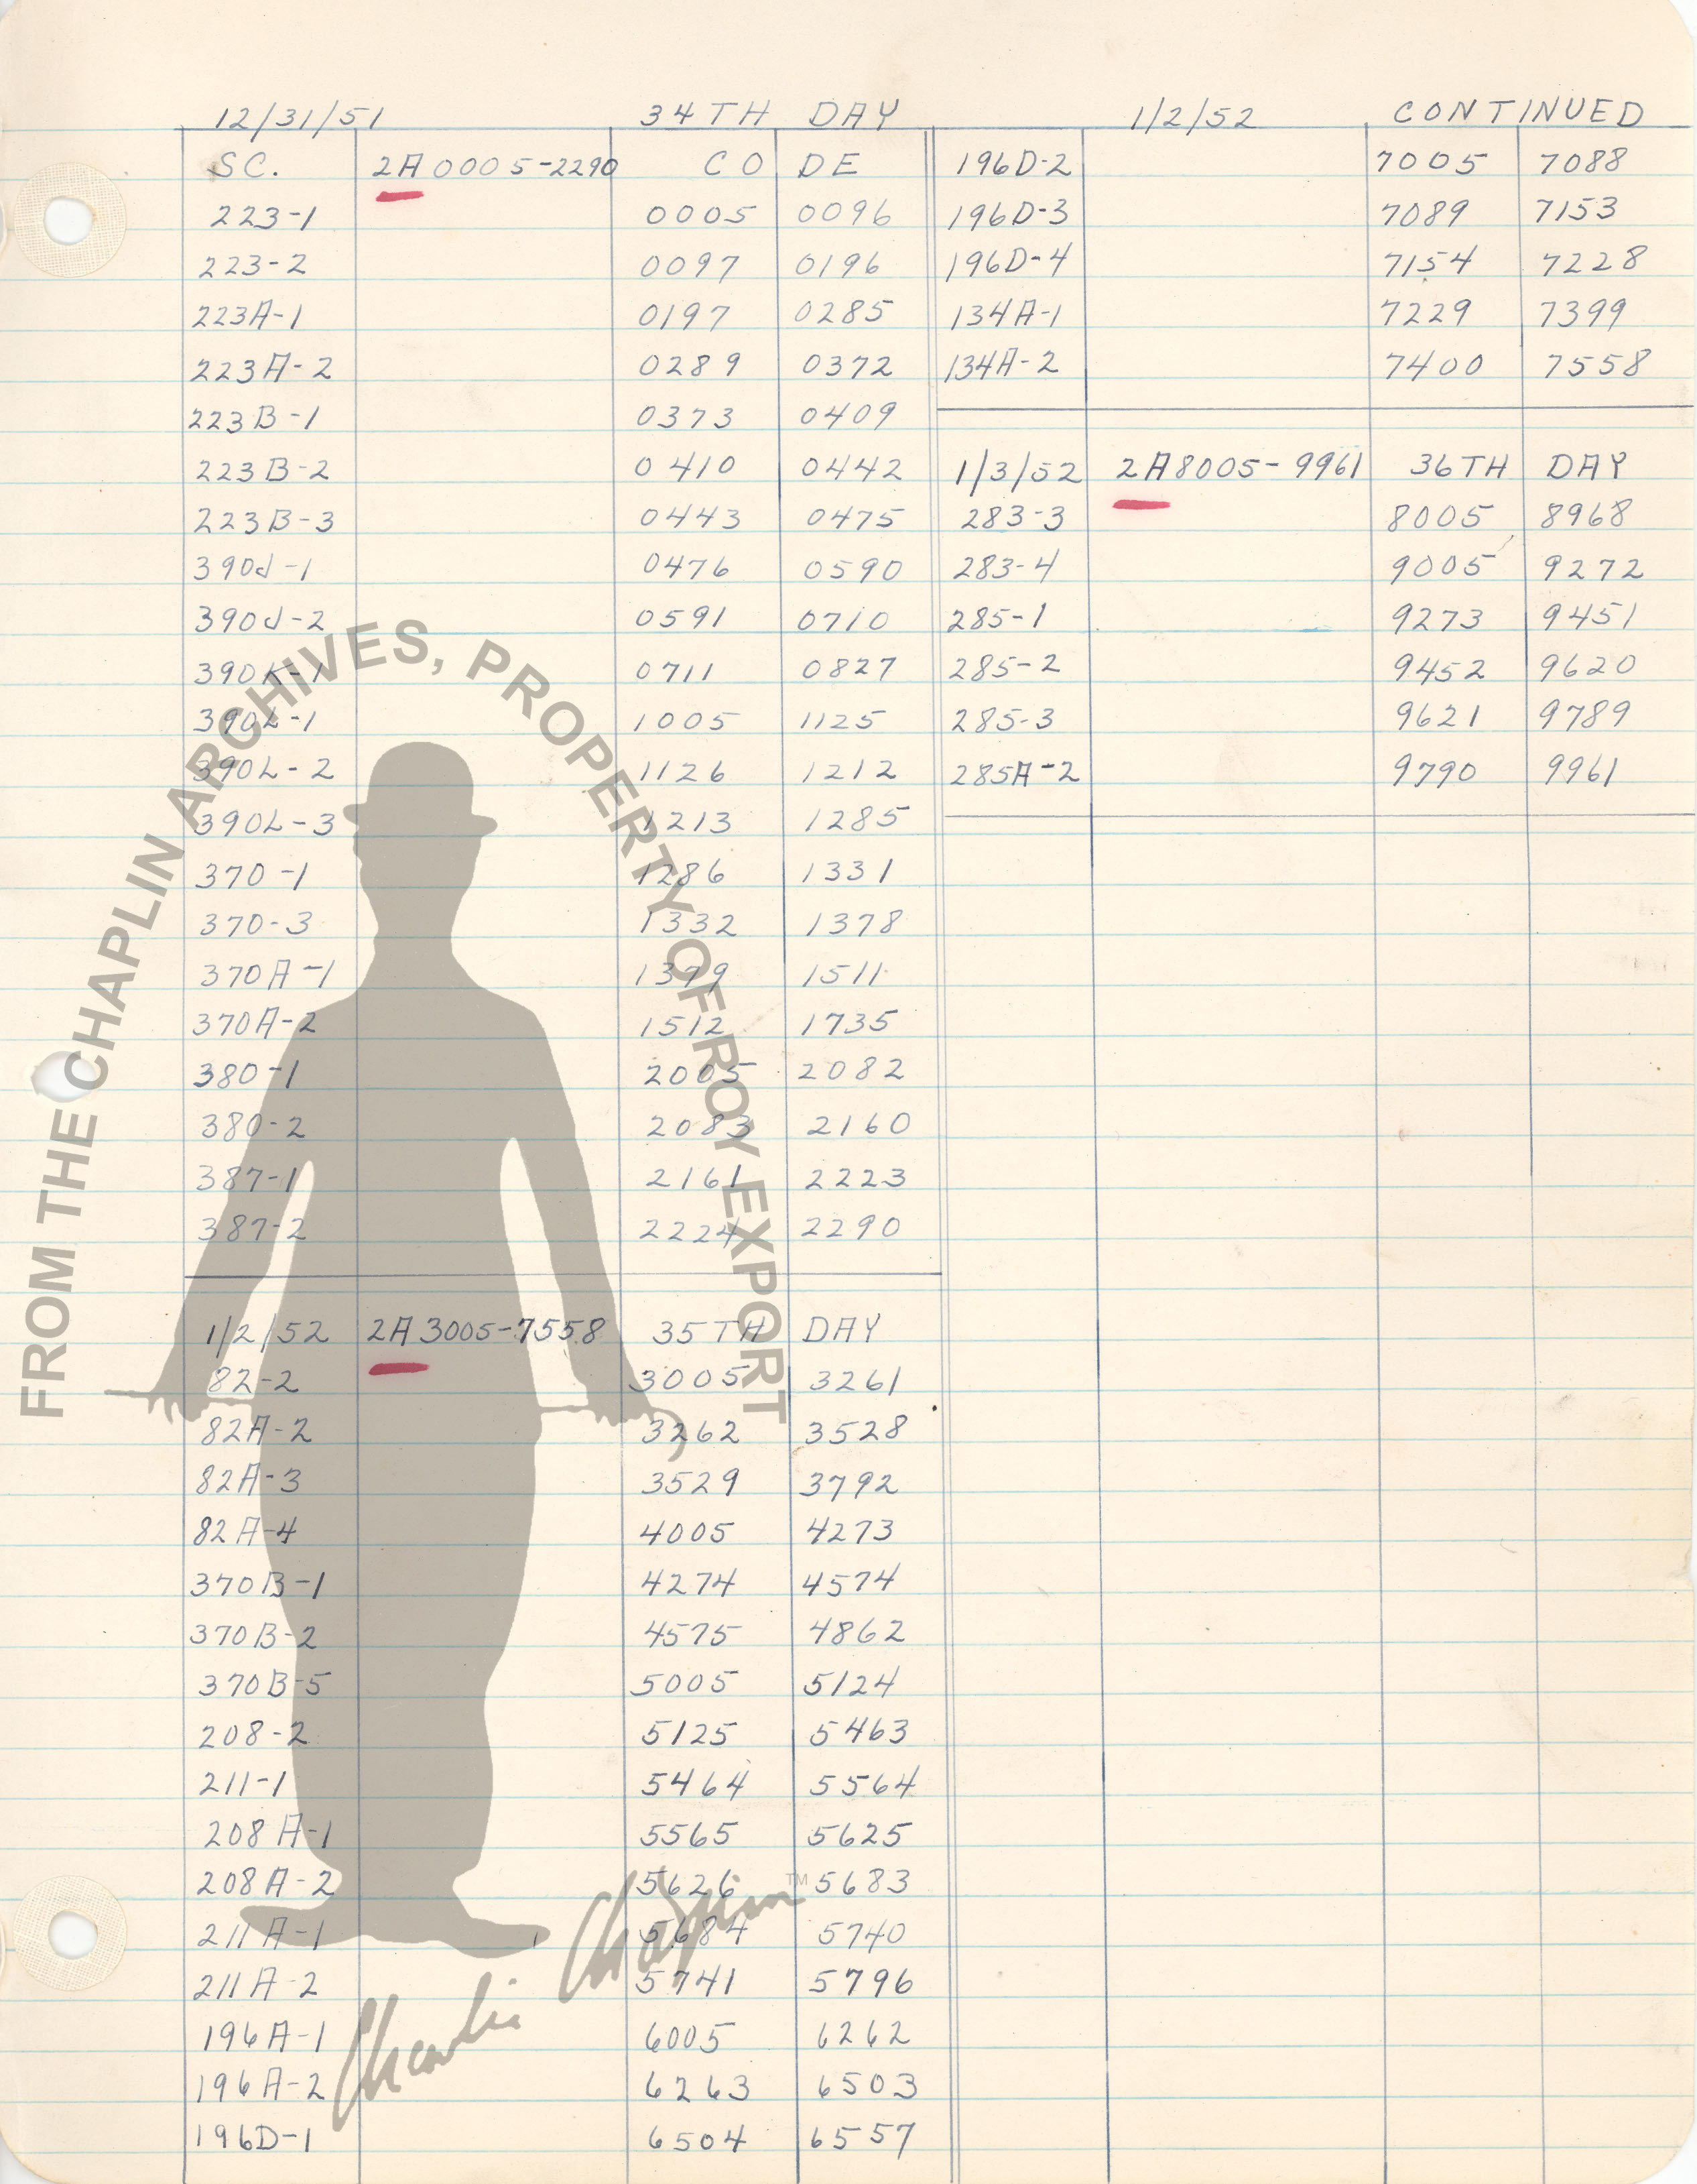 12/31/51 34TH DAY
SC. 2A 0005-2290 CODE
223-1 0005 0096
223-2 0097 0196
223A-1 0197 0285
223A-2 0289 0372
223B-1 0373 0409
223B-2 0410 0442
223B-3 0443 0475
390J-1 0476 0590
390J-2 0591 0710
390K-1 0711 0827
390L-1 1005 1125
390L-2 1126 1212
390L-3 1213 1285
370-1 1286 1331
370-3 1332 1378
370A-1 1379 1511
370A-2 1512 1735
380-1 2005 2082
380-2 2083 2160
387-1 2161 2223
387-2 2224 2290
1/2/52 2A 3005-7558 35TH DAY
82-2 3005 3261
82A-2 3262 3528
82A-3 3529 3792
82A-4 4005 4273
370B-1 4274 4574
370B-2 4575 4862
370B-5 5005 5124
208-2 5125 5463
211-1 5464 5564
208A-1 5565 5625
208A-2 5626 5683
211A-1 5684 5740
211A-2 5741 5796
196A-1 6005 6262
196A-2 6263 6503
196D-1 6504 6557
1/2/52 CONTINUED
196D-2 7005 7088
196D-3 7089 7153
196D-4 7154 7228
134A-1 7229 7399
134A-2 7400 7558
1/3/52 2A 8005-9961 36TH DAY
283-3 8005 8968
283-4 9005 9272
285-1 9273 9451
285-2 9452 9620
285-3 9621 9789
285A-2 9790 9961
FROM THE CHAPLIN ARCHIVES, PROPERTY OF ROY EXPORT
Charlie Chaplin™